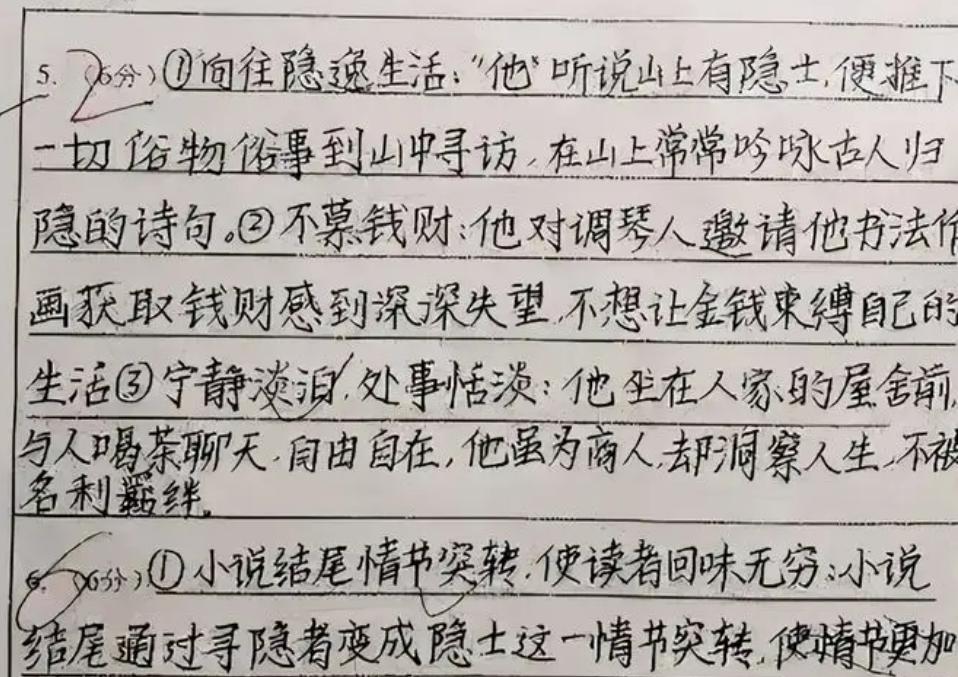 5. (6分)①向往隐逸生活:“他”听说山上有隐士,便推下
一切俗物俗事到山中寻访,在山上常常吟咏古人归
隐的诗句。②不慕钱财:他对调琴人邀请他书法作
画获取钱财感到深深失望,不想让金钱束缚自己的
生活③宁静淡泊,处事恬淡:他坐在人家的屋舍前,
与人喝茶聊天,自由自在,他虽为商人,却洞察人生,不被
名利羁绊。
6. (6分)①小说结尾情节突转,使读者回味无穷:小说
结尾通过寻隐者变成隐士这一情节突转,使情节更加